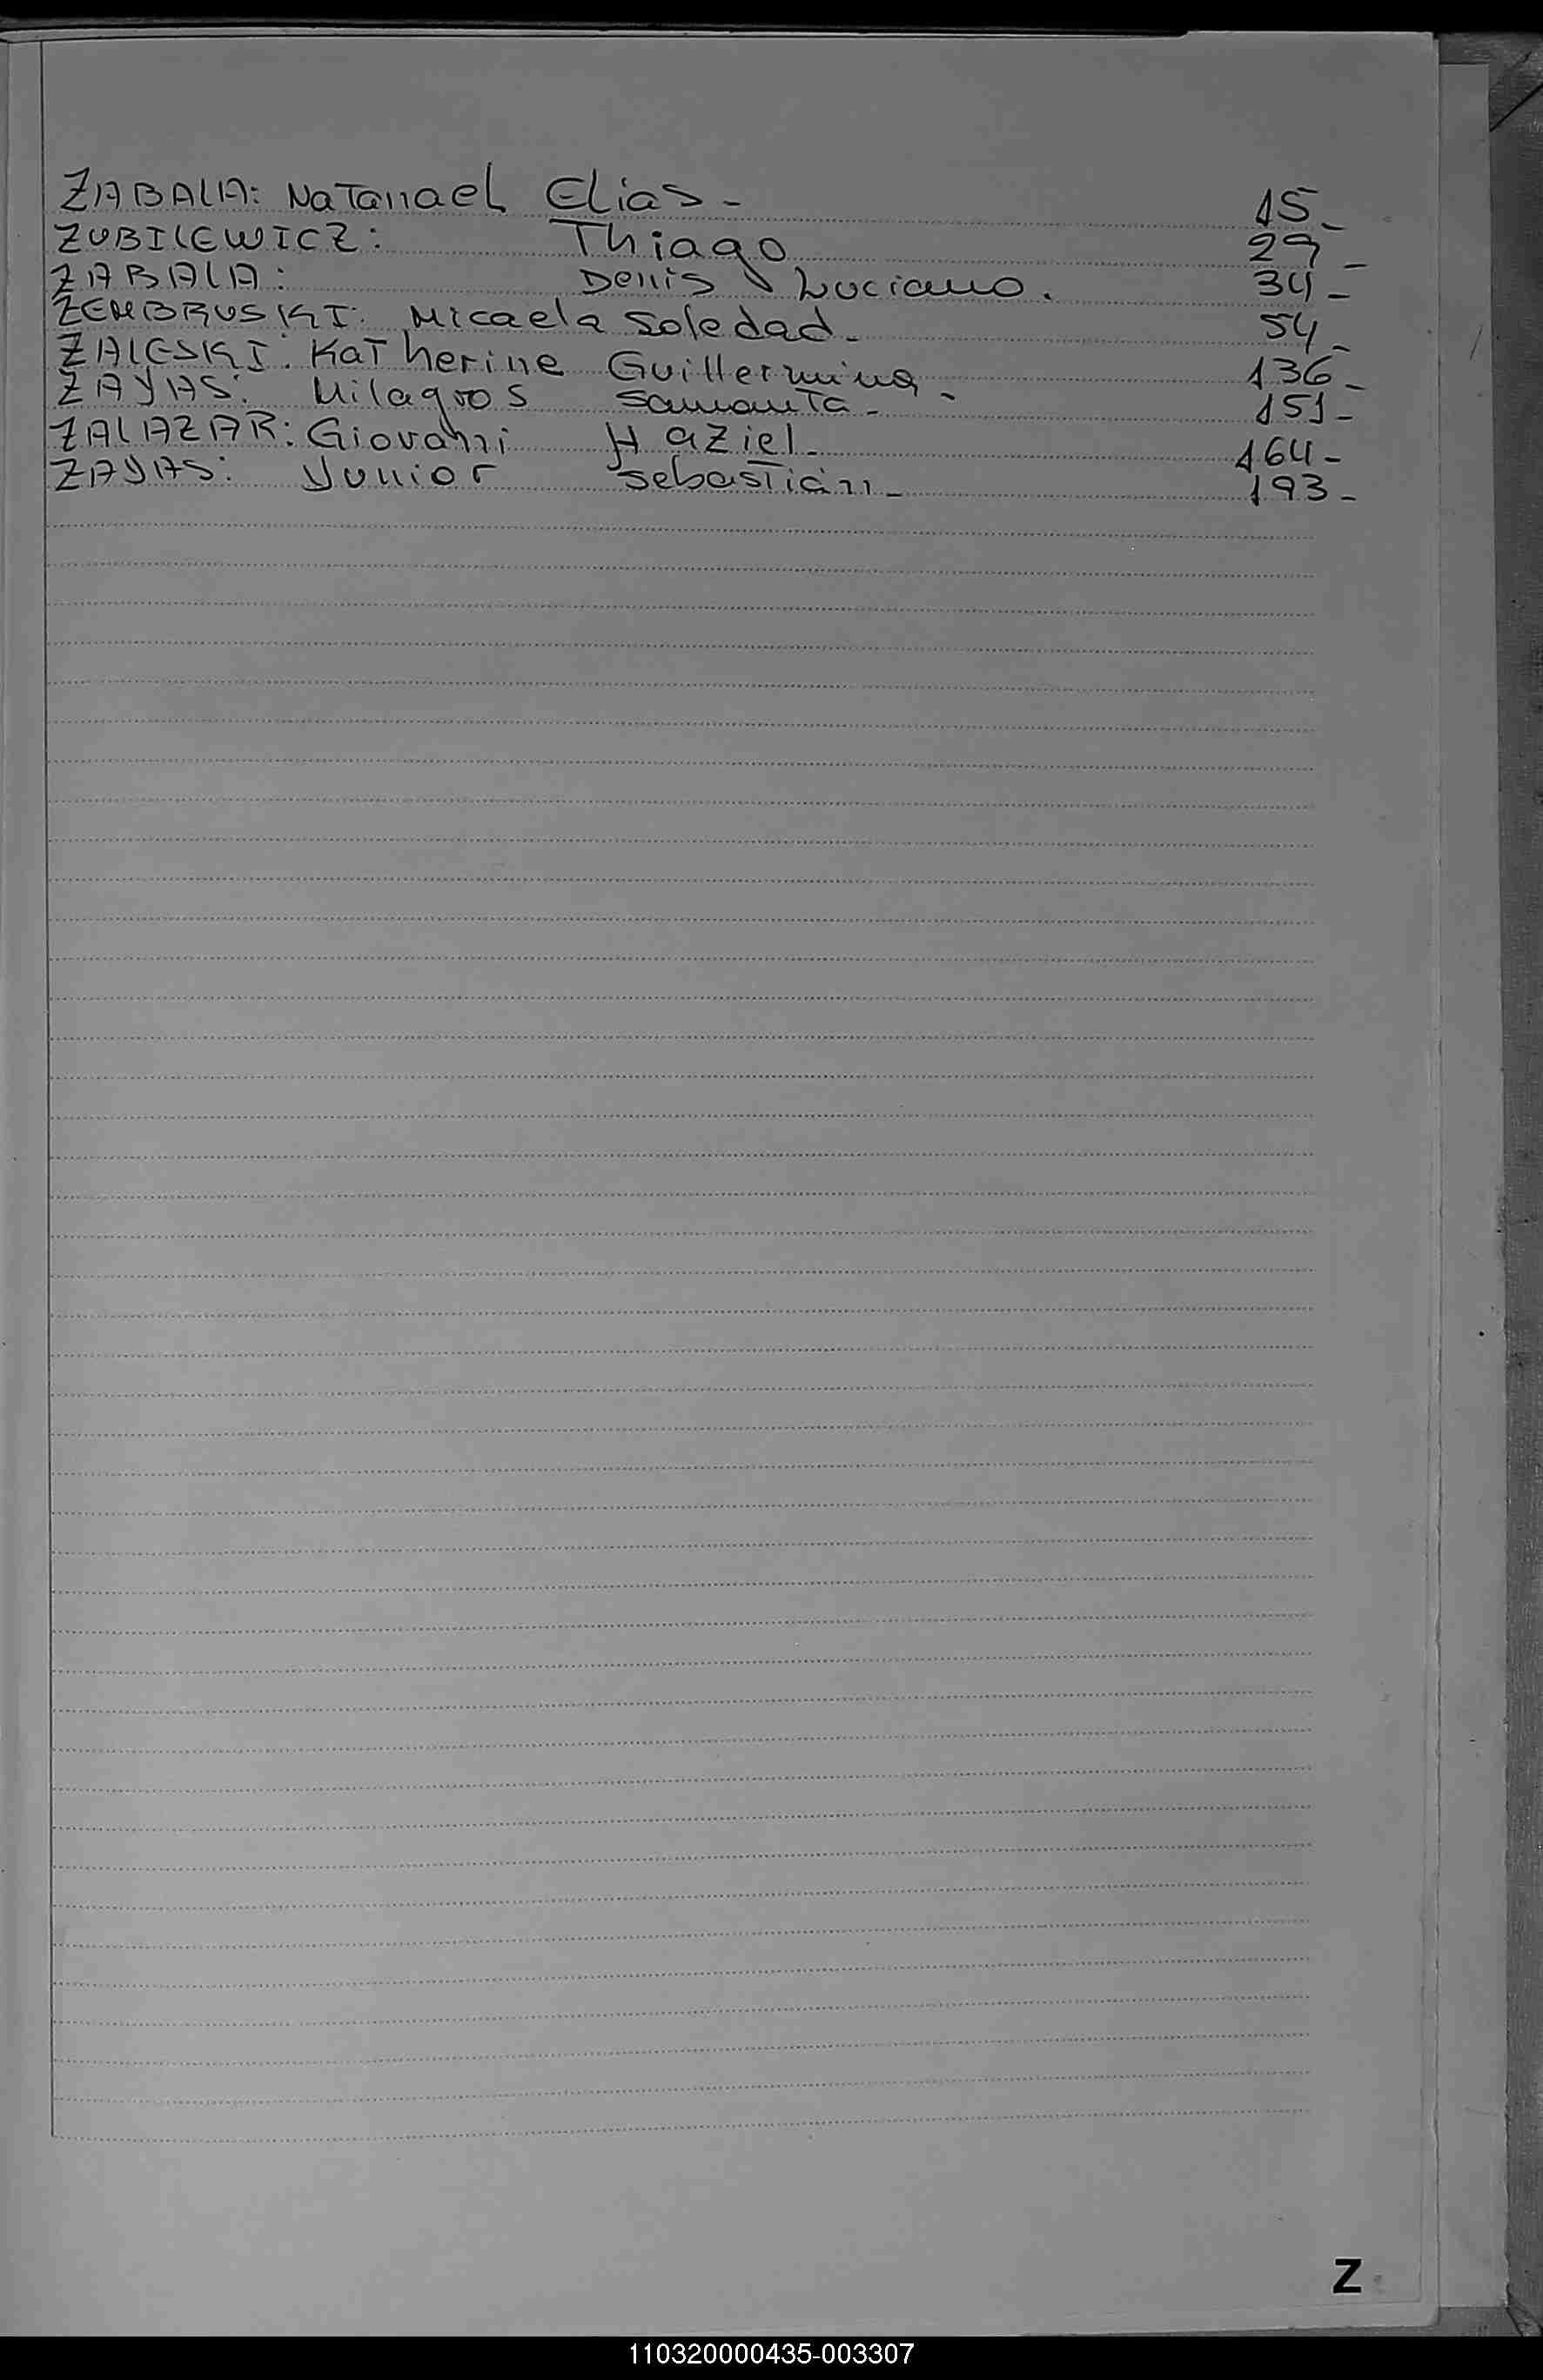 ZABALA: Natanael Elias - 15_
ZUBILEWICZ: Thiago 29_
ZABALA: Denis Luciano. 34_
ZEMBRUSKI: Micaela Soledad_ 54_
ZALESKI: Katherine Guillermina - 136_
ZAYAS: Milagros Samanta - 151_
ZALAZAR: Giovanni Haziel_ 164-
ZAYAS: Yunior Sebastián_ 193-
Z
110320000435-003307